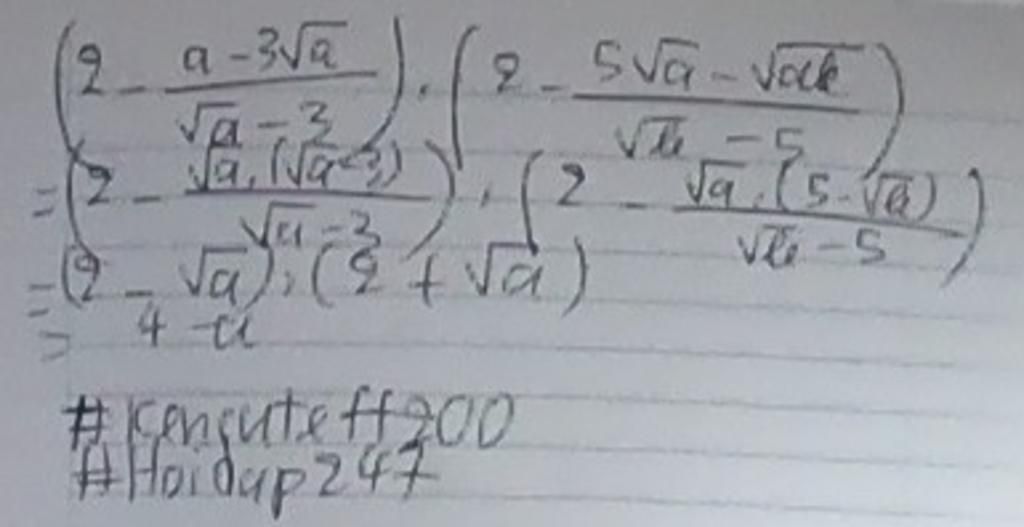 (2 - \frac{a - 3\sqrt{a}}{\sqrt{a} - 3}) . (2 - \frac{5\sqrt{a} - \sqrt{ab}}{\sqrt{b} - 5})
= (2 - \frac{\sqrt{a} . (\sqrt{a} - 3)}{\sqrt{a} - 3}) . (2 - \frac{\sqrt{a} . (5 - \sqrt{b})}{\sqrt{b} - 5})
= (2 - \sqrt{a}) . (2 + \sqrt{a})
= 4 - a
#kensuteff200
#Hoidap247